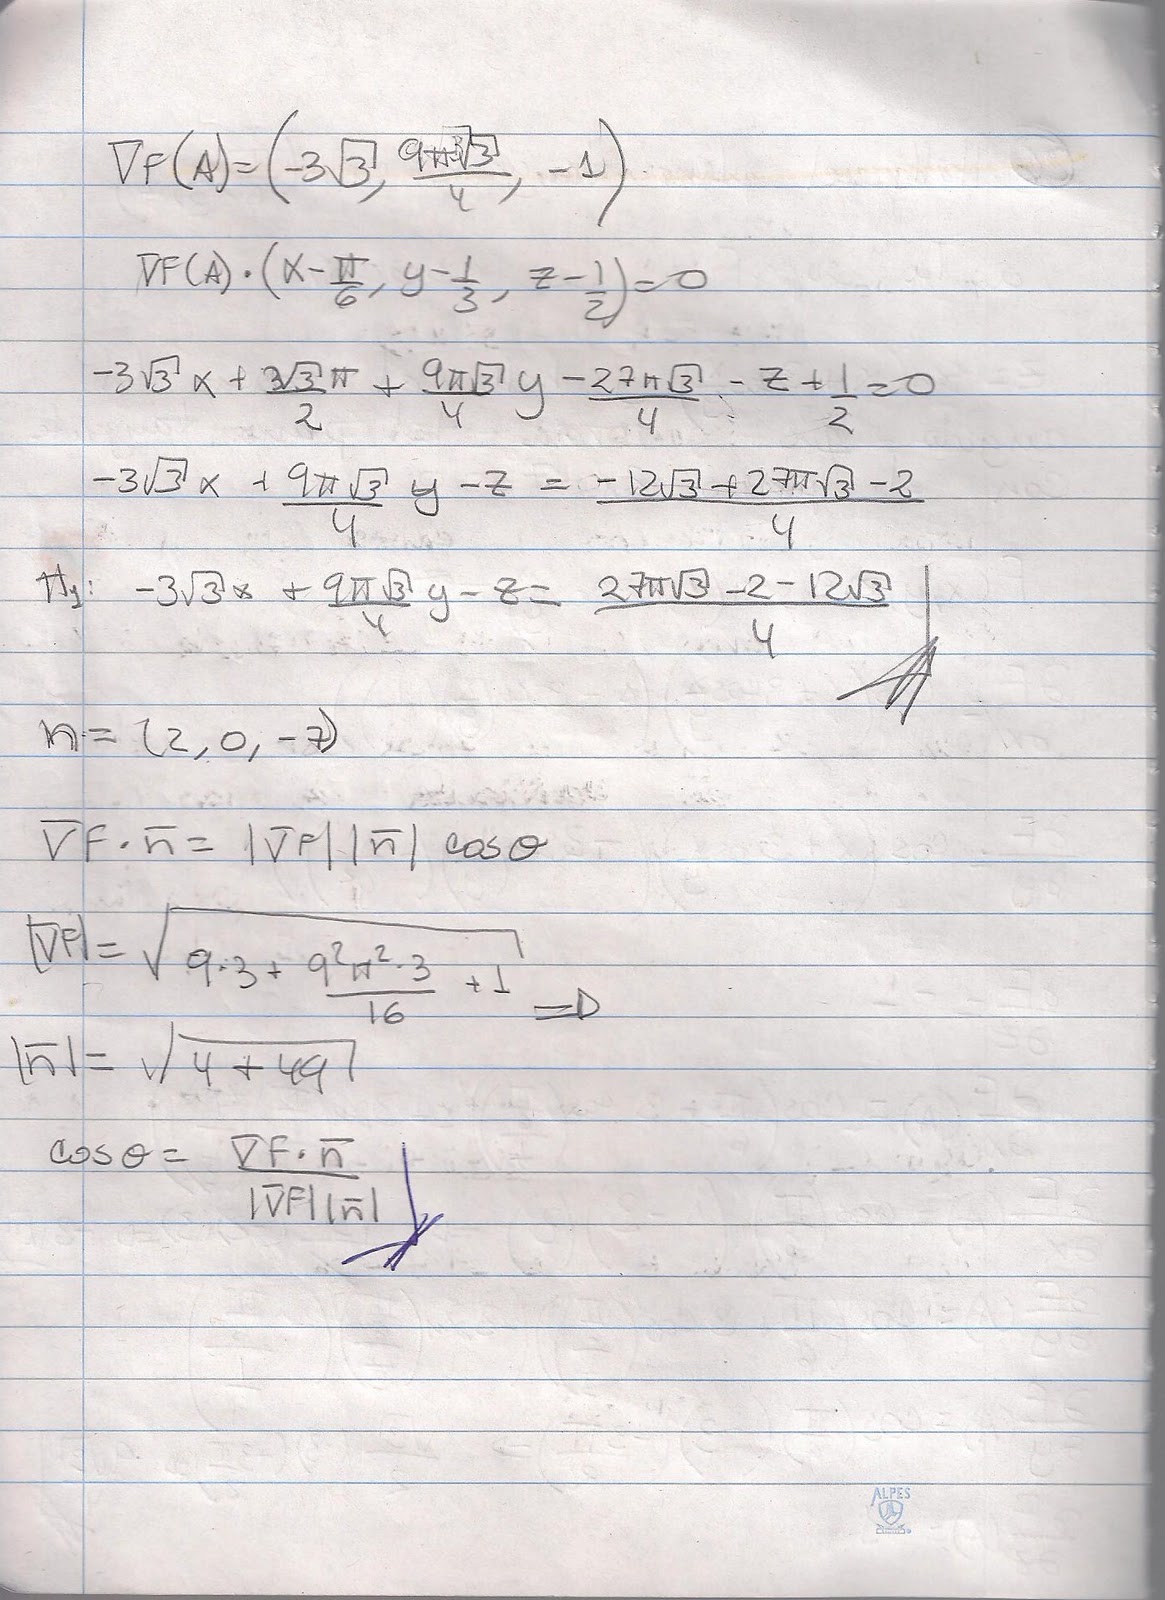 ∇F(A)=(-3√3, 9π√3/4, -1)
∇F(A)·(x-π/6, y-1/3, z-1/2)=0
-3√3 x + 3√3π/2 + 9π√3/4 y - 27π√3/4 - z + 1/2 = 0
-3√3 x + 9π√3/4 y - z = (-12√3+27π√3-2)/4
π₁: -3√3x + 9π√3/4 y - z = (27π√3-2-12√3)/4
n = (2, 0, -7)
∇F·n̄ = |∇F||n̄| cosθ
|∇F| = √(9·3 + 9²π²·3/16 + 1) ⇒
|n̄| = √(4+49)
cosθ = ∇F·n̄/|∇F||n̄|
ALPES